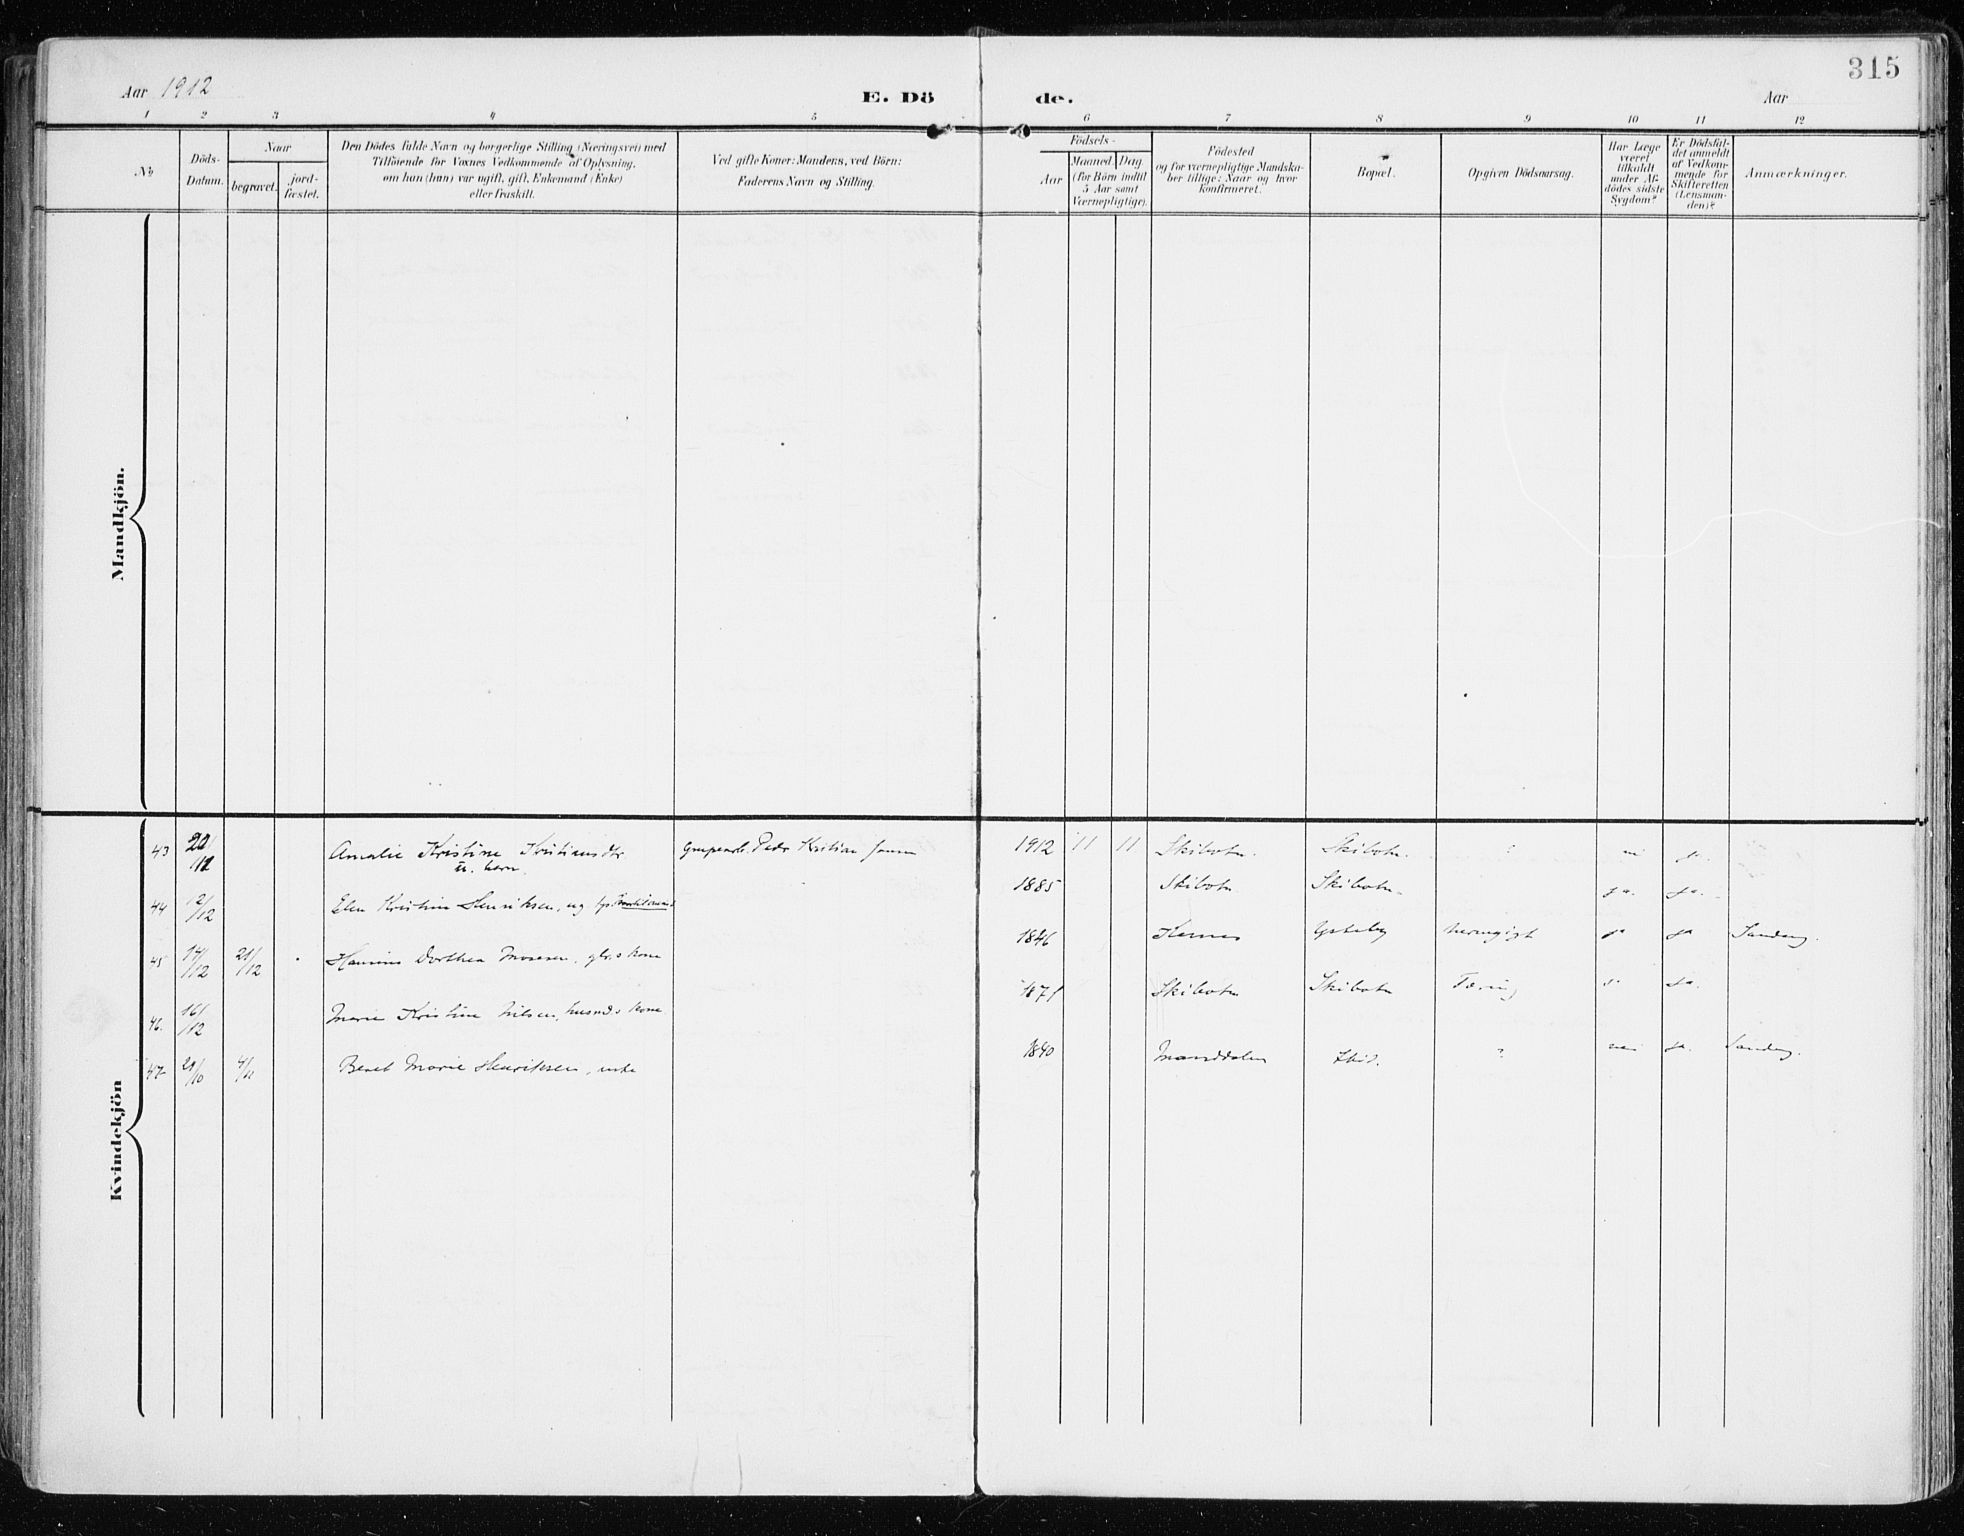 315
Aar 1912
E. Dö
de.
Aar
1 2 3 4 5 6 7 8 9 10 11 12
No
Döds-
Datum.
Naar
begravet.
jord-
fæstet.
Den Dödes fulde Navn og borgerlige Stilling (Næringsvei) med
Tilföiende for Voxnes Vedkommende af Oplysning,
om han (hun) var ugift, gift, Enkemand (Enke)
eller fraskilt.
Ved gifte Koner: Mandens, ved Börn:
Faderens Navn og Stilling.
Födsels-
Aar
Maaned. Dag.
(for Börn indtil
5 Aar samt
Værnepligtige).
Födested
og for værnepligtige Mandska-
ber tillige: Naar og hvor
konfirmeret.
Bopæl.
Opgiven Dödsaarsag.
Har Læge
været
tilkaldt
under Af-
dödes sidste
Sygdom?
Er Dödsfal-
det anmeldt
af Vedkom-
mende for
Skifteretten
(Lensman-
den)?
Anmærkninger.
Mandkjön.
Kvindekjön
43 20/12 Amalie Kristine Kristiansdtr. Pedr Kristian Jansen 1912 11 11 Skibotn. Skibotn. ? ja.
u. barn.
44 2/12 Elen Kristine Henriksen, ug. 1885 Skibotn Skibotn. ja. ja.
45 14/12 21/12 Dorthea Mosesen, kone 1846 Kernes ja ja
46. 16/12 Marie Kristine Nilsen, husmds kone 1871 Skibotn Skibotn Tæring ja.
47 29/10 4/11 Beret Marie Henriksen, enke 1840 Manddalen Skib. ? nei ja.